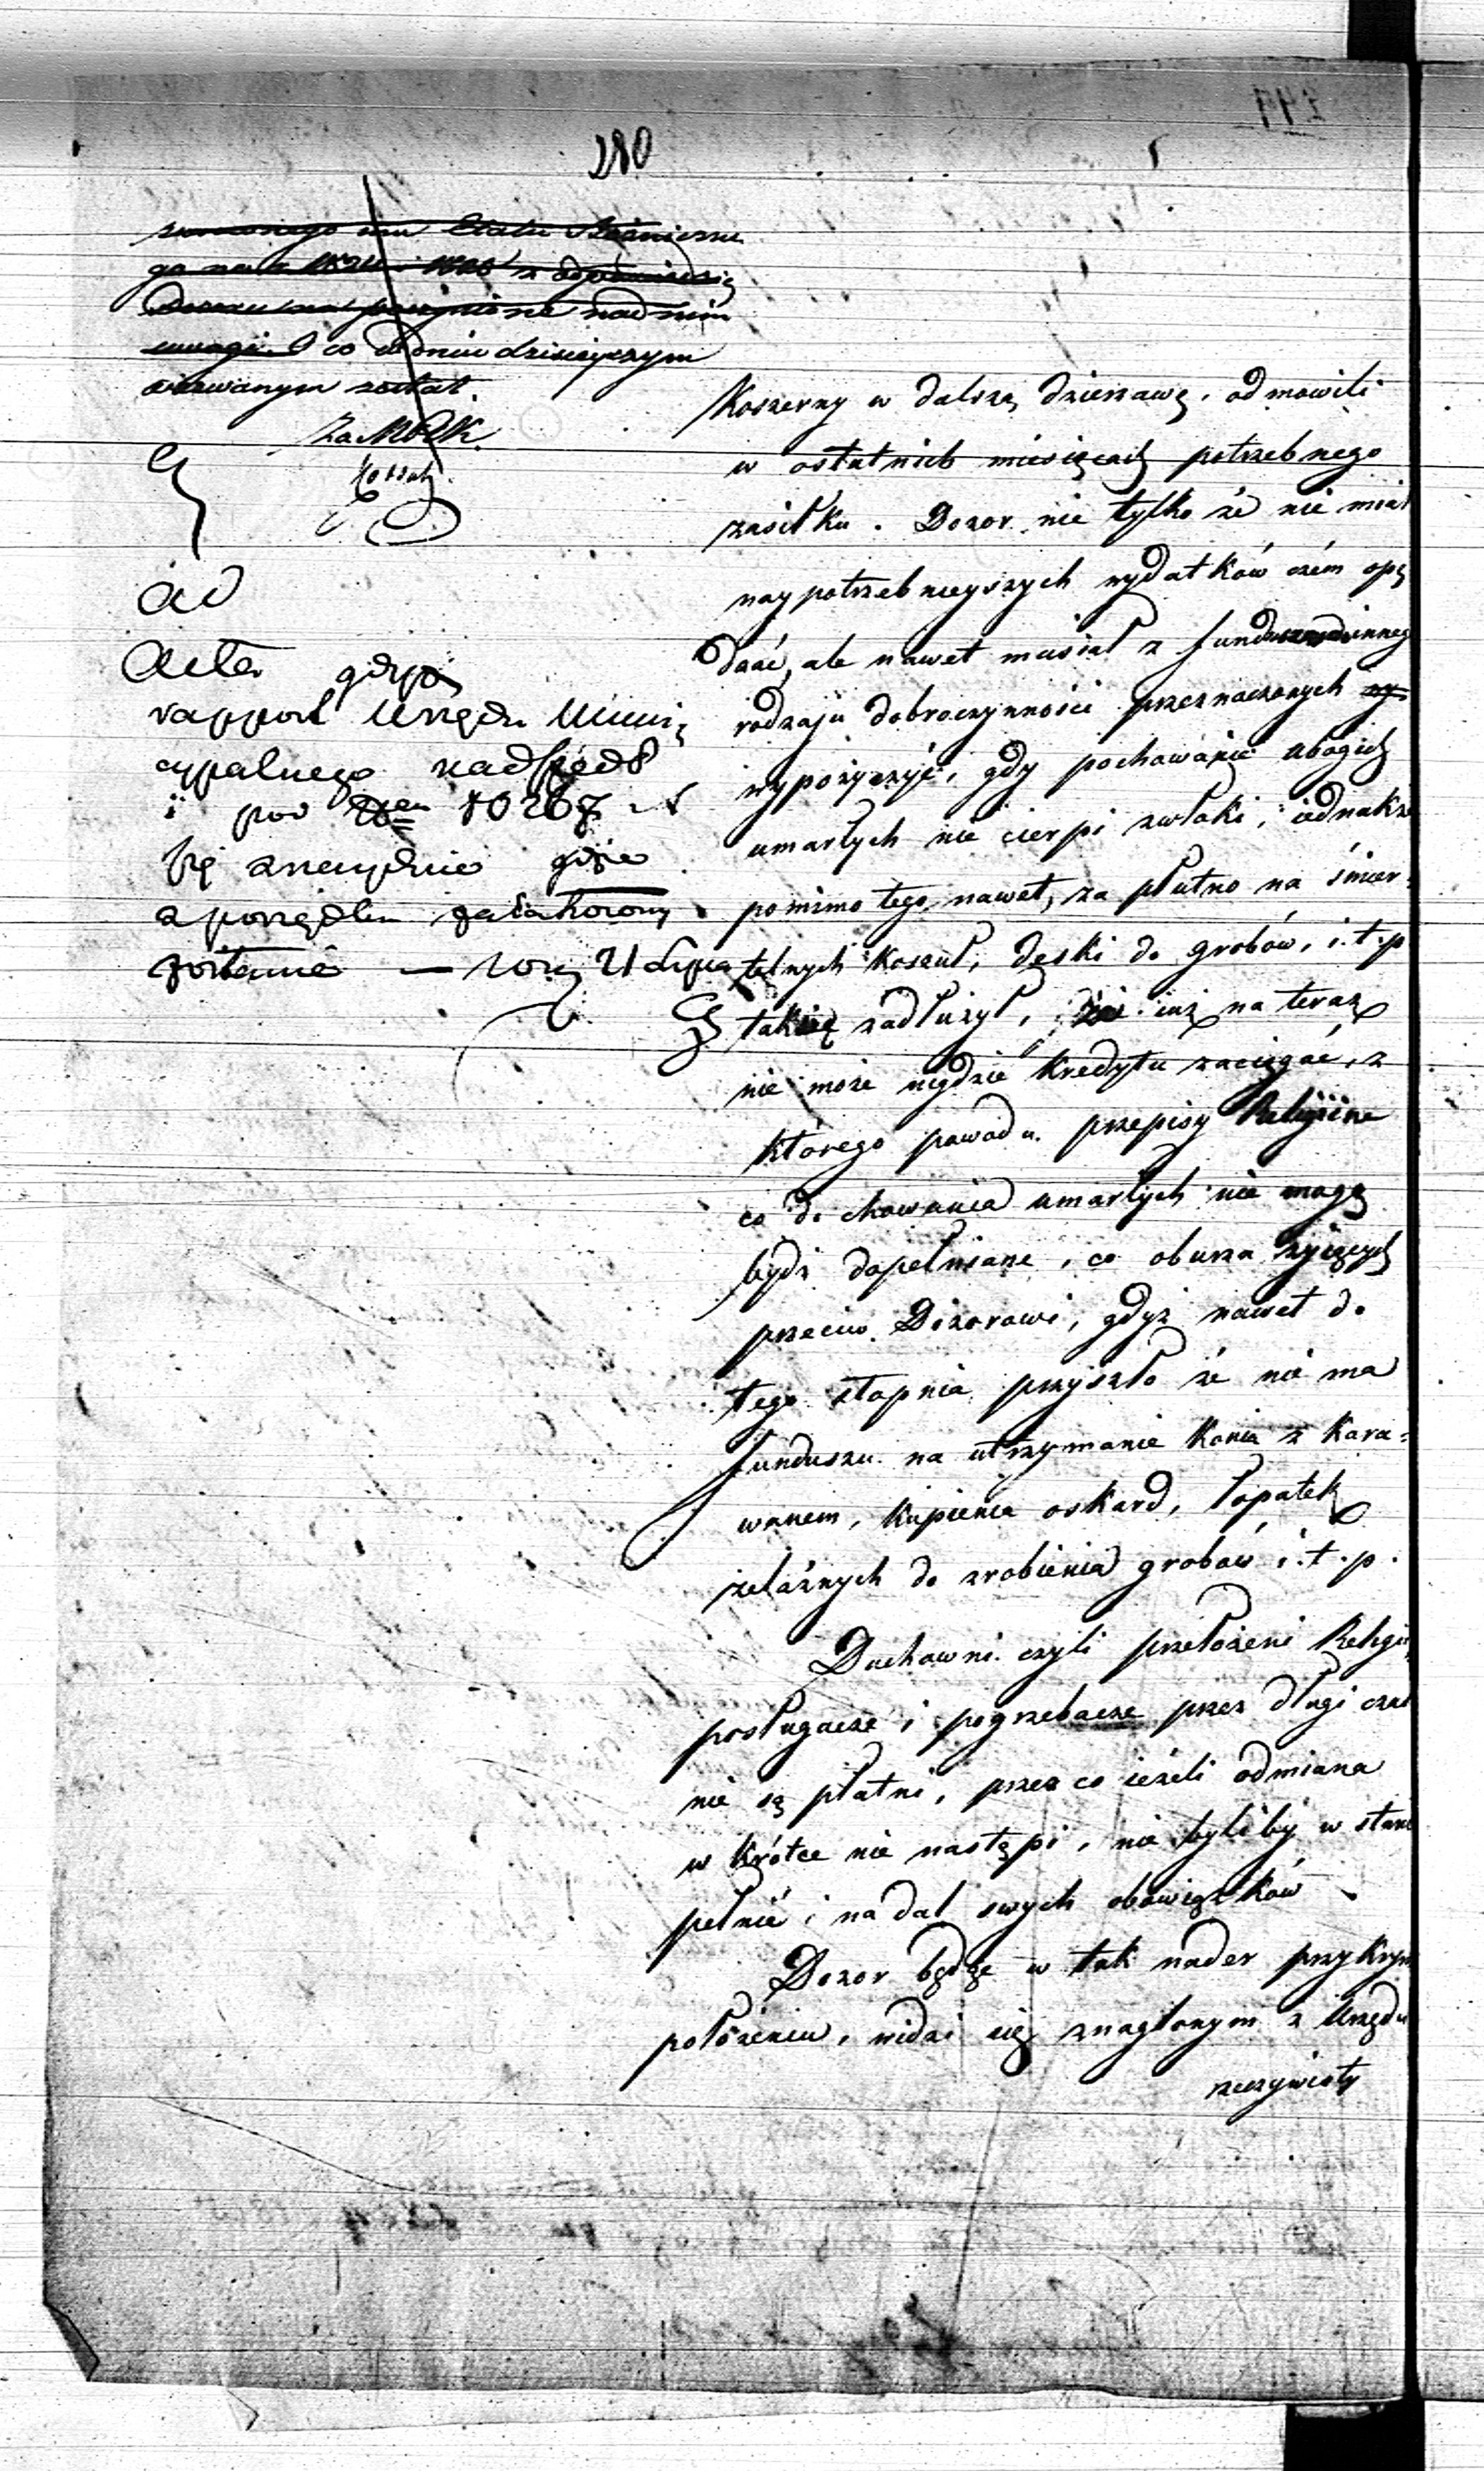 280
go na r. i z
nad nim
uwagi. O co w dniu dzisieyszym
wezwanym został.
Za
ad
Acta gdyż
rapport Urzędu Muni
cypalnego nadszedł
i pod 10267
się znayduie gdzie
z porządku
zostanie — 21 Lipca
Koszerny w dalszą dzierzawę, odmowili
w ostatnich miesięcach potrzebnego
zasiłku. Dozor nie tylko że nie miał
naypotrzebnieyszych wydatków czém opę
dzać, ale nawet musiał z funduszu innego
rodzaju dobroczynności przeznaczonych wy
wypożyczyć, gdy pochowanie ubogich
umarłych nie cierpi zwłoki, iednakże
pomimo tego nawet, za płutno na śmier-
telnych koszul, deski do grobów, i.t.p
tak się zadłużył, że iuż na teraz
nie może nigdzie kredytu zaciągać, z
którego powodu przepisy Religiine
co do chowania umarłych nie mogą
bydź dopełniane, co oburza żyiących
przeciw Dozorowi, gdyż nawet do
tego stopnia przyszło że nie ma
funduszu na utrzymanie konia z kara=
wanem, kupienia oskard, łopatek
żelaznych do zrobienia grobów i.t.p.
Duchowni czyli przełożeni Religii,
posługacze i pogrzebacze przez długi czas
nie są płatni, przez co ieżeli odmiana
w krótce nie nastąpi, nie byliby w stanie
pełnić i na dal swych obowiązków
Dozor będąc w tak nader przykrym
położeniu, widzi się znaglonym z Urzędu
rzeczywisty